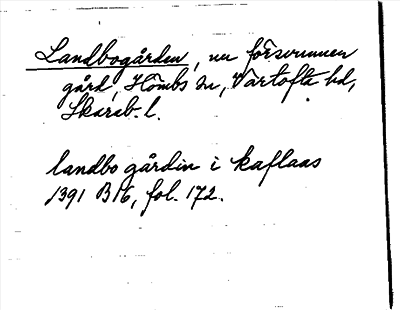 Landbogården, nu försvunnen
gård, Hömbs sn, Vartofta hd,
Skarab. l.
landbo gårdin i kaflaas
1391 B16, fol. 172.